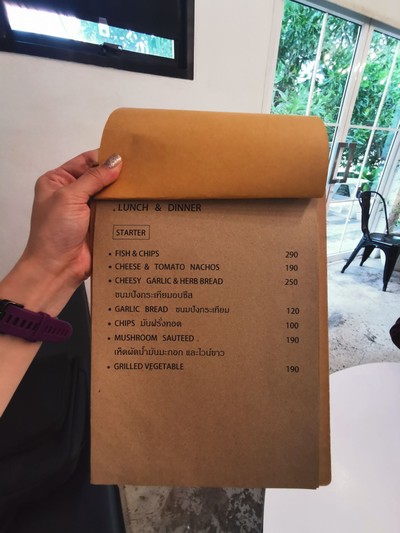 . LUNCH & DINNER
STARTER
• FISH & CHIPS 290
• CHEESE & TOMATO NACHOS 190
• CHEESY GARLIC & HERB BREAD 250
ขนมปังกระเทียมอบชีส
• GARLIC BREAD ขนมปังกระเทียม 120
• CHIPS มันฝรั่งทอด 100
• MUSHROOM SAUTEED . 190
เห็ดผัดน้ำมันมะกอก และไวน์ขาว
• GRILLED VEGETABLE 190